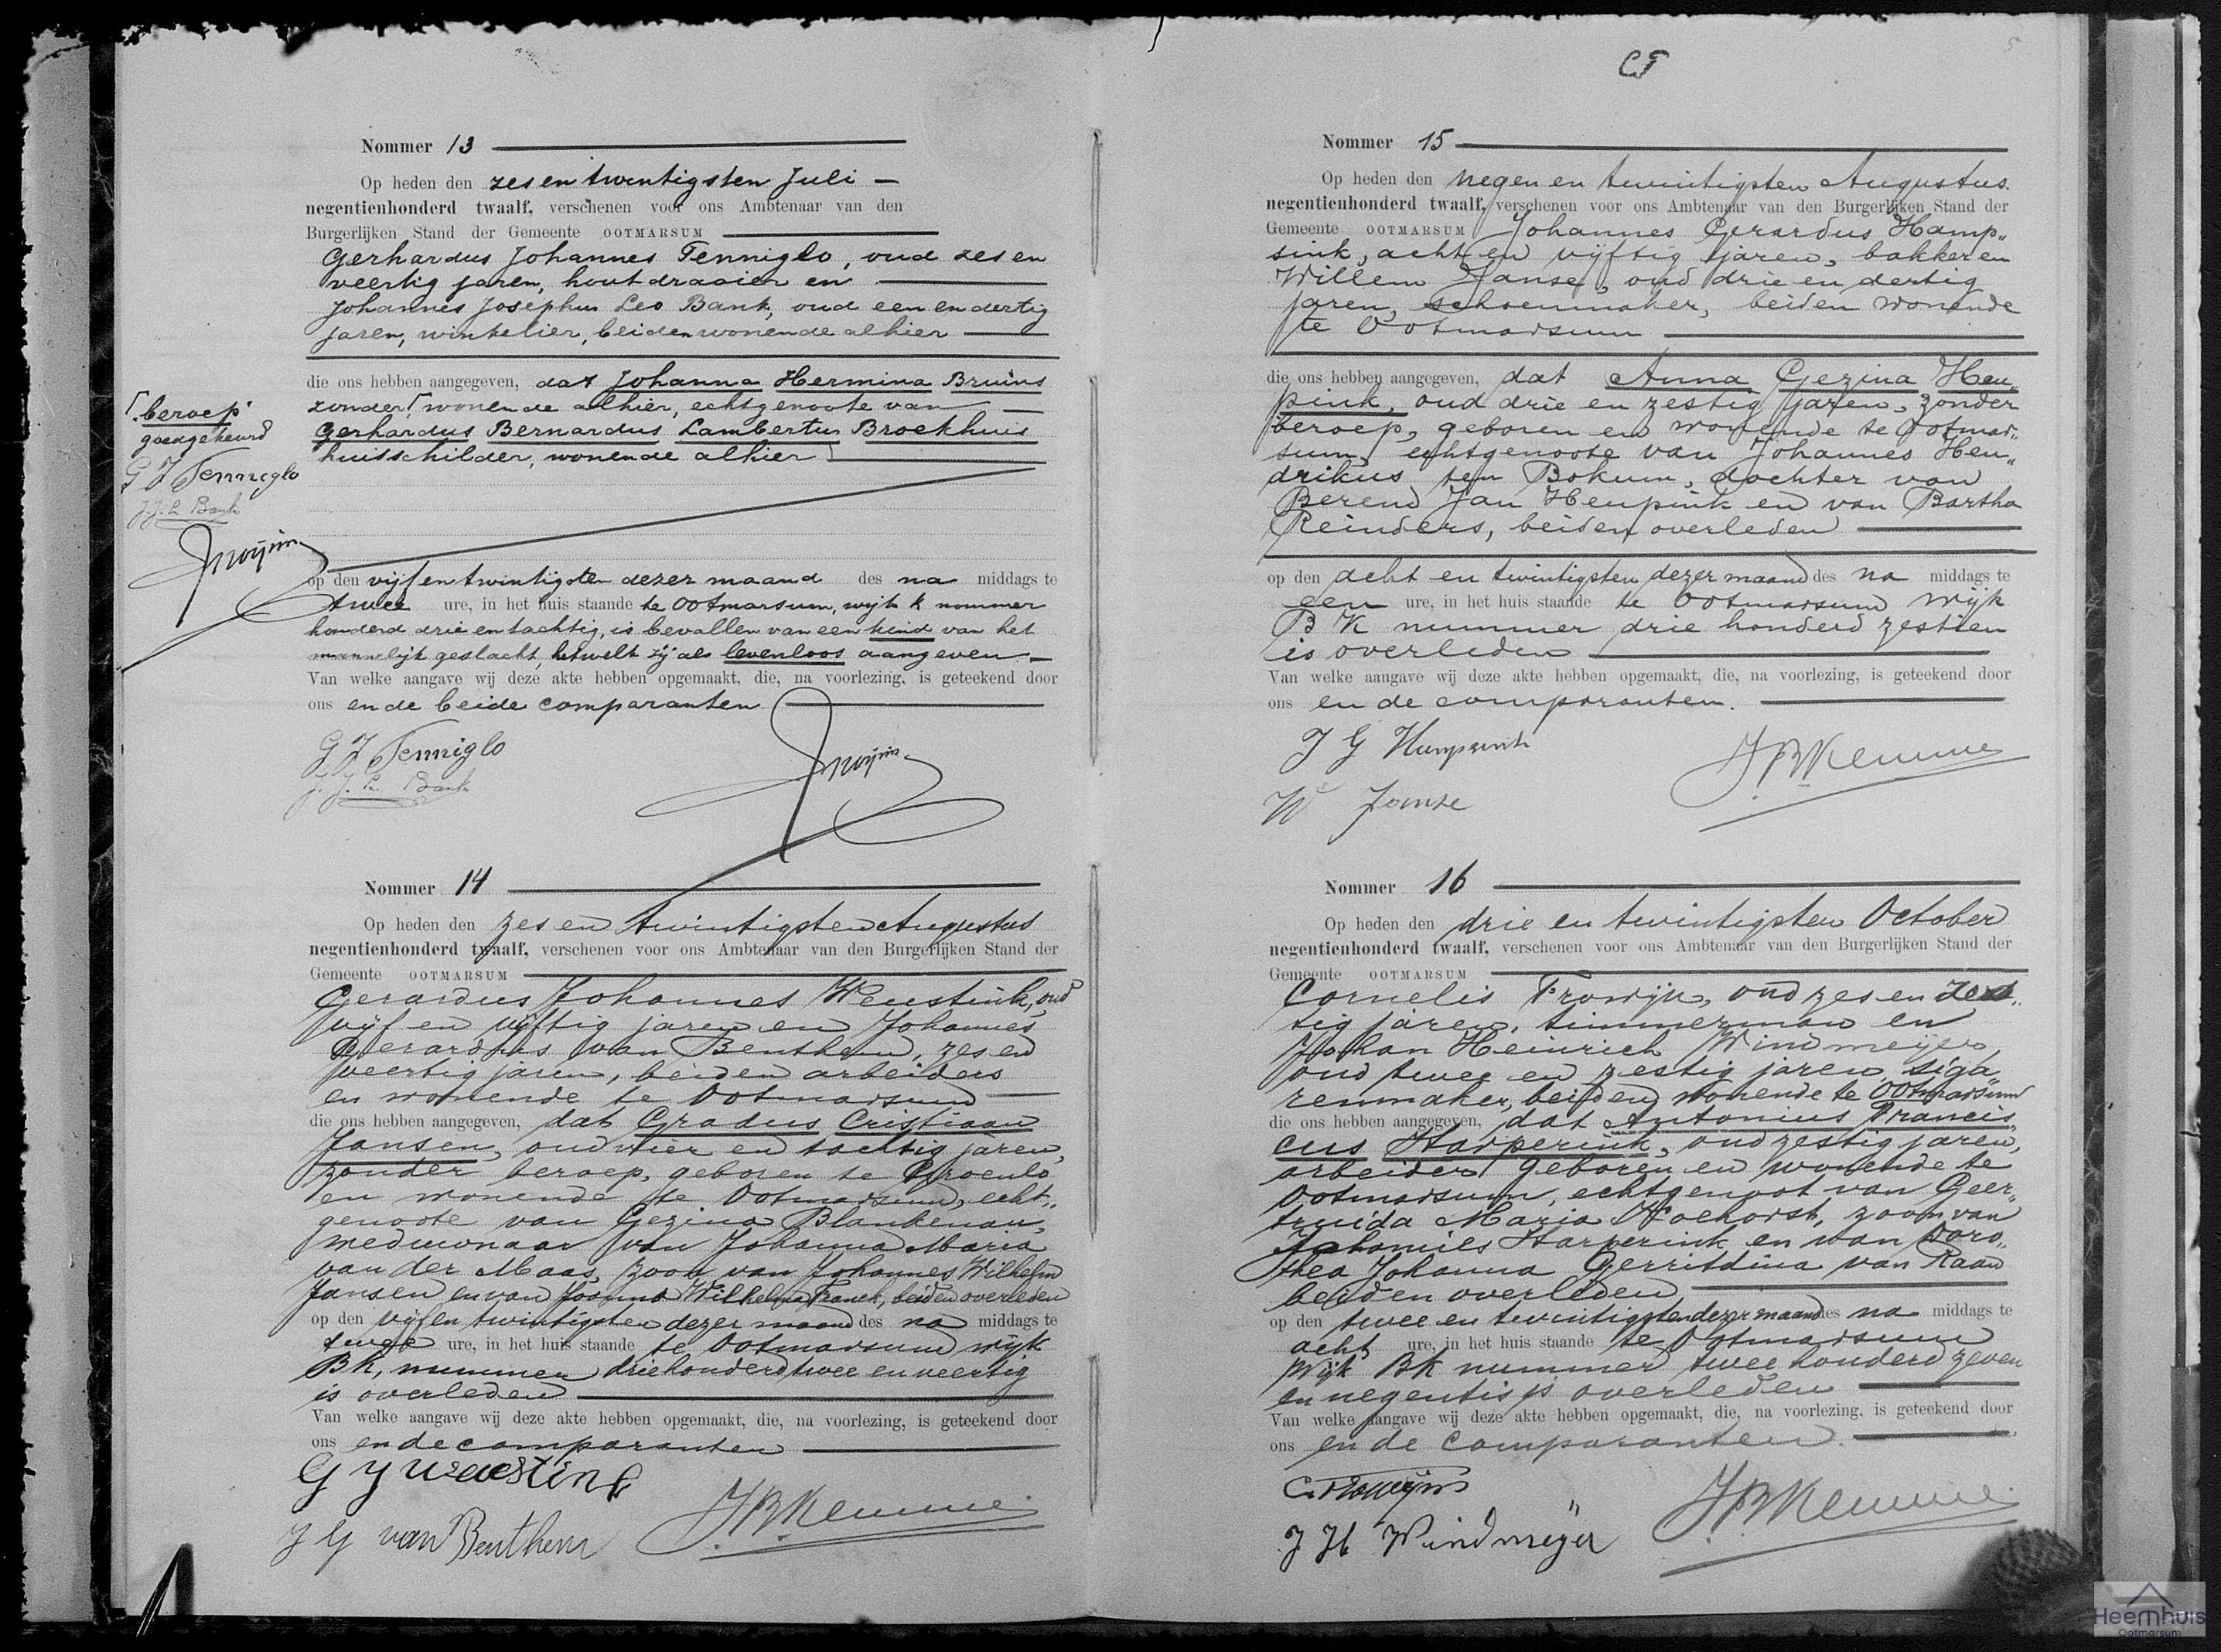 Nommer 13
Op heden den zes en twintigsten Juli
negentienhonderd twaalf, verschenen voor ons Ambtenaar van den
Burgerlijken Stand der Gemeente OOTMARSUM
Gerhardus Johannes Tenniglo, oud zes en
veertig jaren, houtdraaier en
Johannes Josephus Leo Bank, oud een en dertig
jaren, winkelier, beiden wonende alhier
die ons hebben aangegeven, dat Johanna Hermina Bruins
zonder ⌈ wonende alhier, echtgenoote van
Gerhardus Bernardus Lambertus Broekhuis
huisschilder, wonende alhier
⌈ beroep
goedgekeurd
G J Tenniglo
J. J. L Bank
op den vijf en twintigsten dezer maand des na middags te
twee ure, in het huis staande te Ootmarsum, wijk K nommer
honderd drie en tachtig, is bevallen van een kind van het
mannelijk geslacht, hetwelk zij als levenloos aangeven
Van welke aangave wij deze akte hebben opgemaakt, die, na voorlezing, is geteekend door
ons en de beide comparanten
G J Tenniglo
J. J. L. Bank
Nommer 14
Op heden den zes en twintigsten Augustus
negentienhonderd twaalf, verschenen voor ons Ambtenaar van den Burgerlijken Stand der
Gemeente OOTMARSUM
Gerardus Johannes Weustink, oud
vijf en vijftig jaren en Johannes
Gerardus van Benthem, zes en
veertig jaren, beiden arbeiders
en wonende te Ootmarsum
die ons hebben aangegeven, dat Gradus Cristiaan
Jansen, oud vier en tachtig jaren,
zonder beroep, geboren te Groenlo
en wonende te Ootmarsum, echt„
genoote van Gezina Blankenau,
weduwnaar van Johanna Maria
van der Maas, zoon van Johannes Wilhelm
Jansen en van Wilhelma Franck, beiden overleden
op den vijf en twintigsten dezer maand des na middags te
ure, in het huis staande te Ootmarsum wijk
BK, nummer driehonderd twee en veertig
is overleden
Van welke aangave wij deze akte hebben opgemaakt, die, na voorlezing, is geteekend door
ons en de comparanten
J G van Benthem
J.B. Kemme
CJ
5
Nommer 15
Op heden den negen en twintigsten Augustus
negentienhonderd twaalf, verschenen voor ons Ambtenaar van den Burgerlijken Stand der
Gemeente OOTMARSUM Johannes Gerardus Hamp„
sink, acht en vijftig jaren, bakker en
Willem Janse, oud drie en dertig
jaren, schoenmaker, beiden wonende
te Ootmarsum
die ons hebben aangegeven, dat Anna Gezina Heu„
pink, oud drie en zestig jaren, zonder
beroep, geboren en wonende te Ootmar„
sum, echtgenoote van Johannes Hen„
drikus ten Bokum, dochter van
Berend Jan Heupink en van Bartha
Reinders, beiden overleden
op den acht en twintigsten dezer maand des na middags te
een ure, in het huis staande te Ootmarsum wijk
B K nummer drie honderd zestien
is overleden
Van welke aangave wij deze akte hebben opgemaakt, die, na voorlezing, is geteekend door
ons en de comparanten.
W Janse
J.B. Kemme
Nommer 16
Op heden den drie en twintigsten October
negentienhonderd twaalf, verschenen voor ons Ambtenaar van den Burgerlijken Stand der
Gemeente OOTMARSUM
Cornelis Trowijn, oud zes en zes„
tig jaren, timmerman en
Johan Heinrich Windmeijer,
oud twee en zestig jaren siga„
renmaker, beiden wonende te Ootmarsum
die ons hebben aangegeven, dat Antonius Francis„
cus Harperink, oud zestig jaren,
arbeider geboren en wonende te
Ootmarsum, echtgenoot van Geer„
truida Maria zoon van
Harperink en van Doro„
thea Johanna Gerritdina van Raan
beiden overleden
op den twee en twintigsten dezer maand des na middags te
acht ure, in het huis staande te Ootmarsum
Wijk BK nummer twee honderd zeven
en negentig is overleden
Van welke aangave wij deze akte hebben opgemaakt, die, na voorlezing, is geteekend door
ons en de comparanten.
C. Trowijn
J H Windmeijer
J.B. Kemme
Heemhuis
Ootmarsum